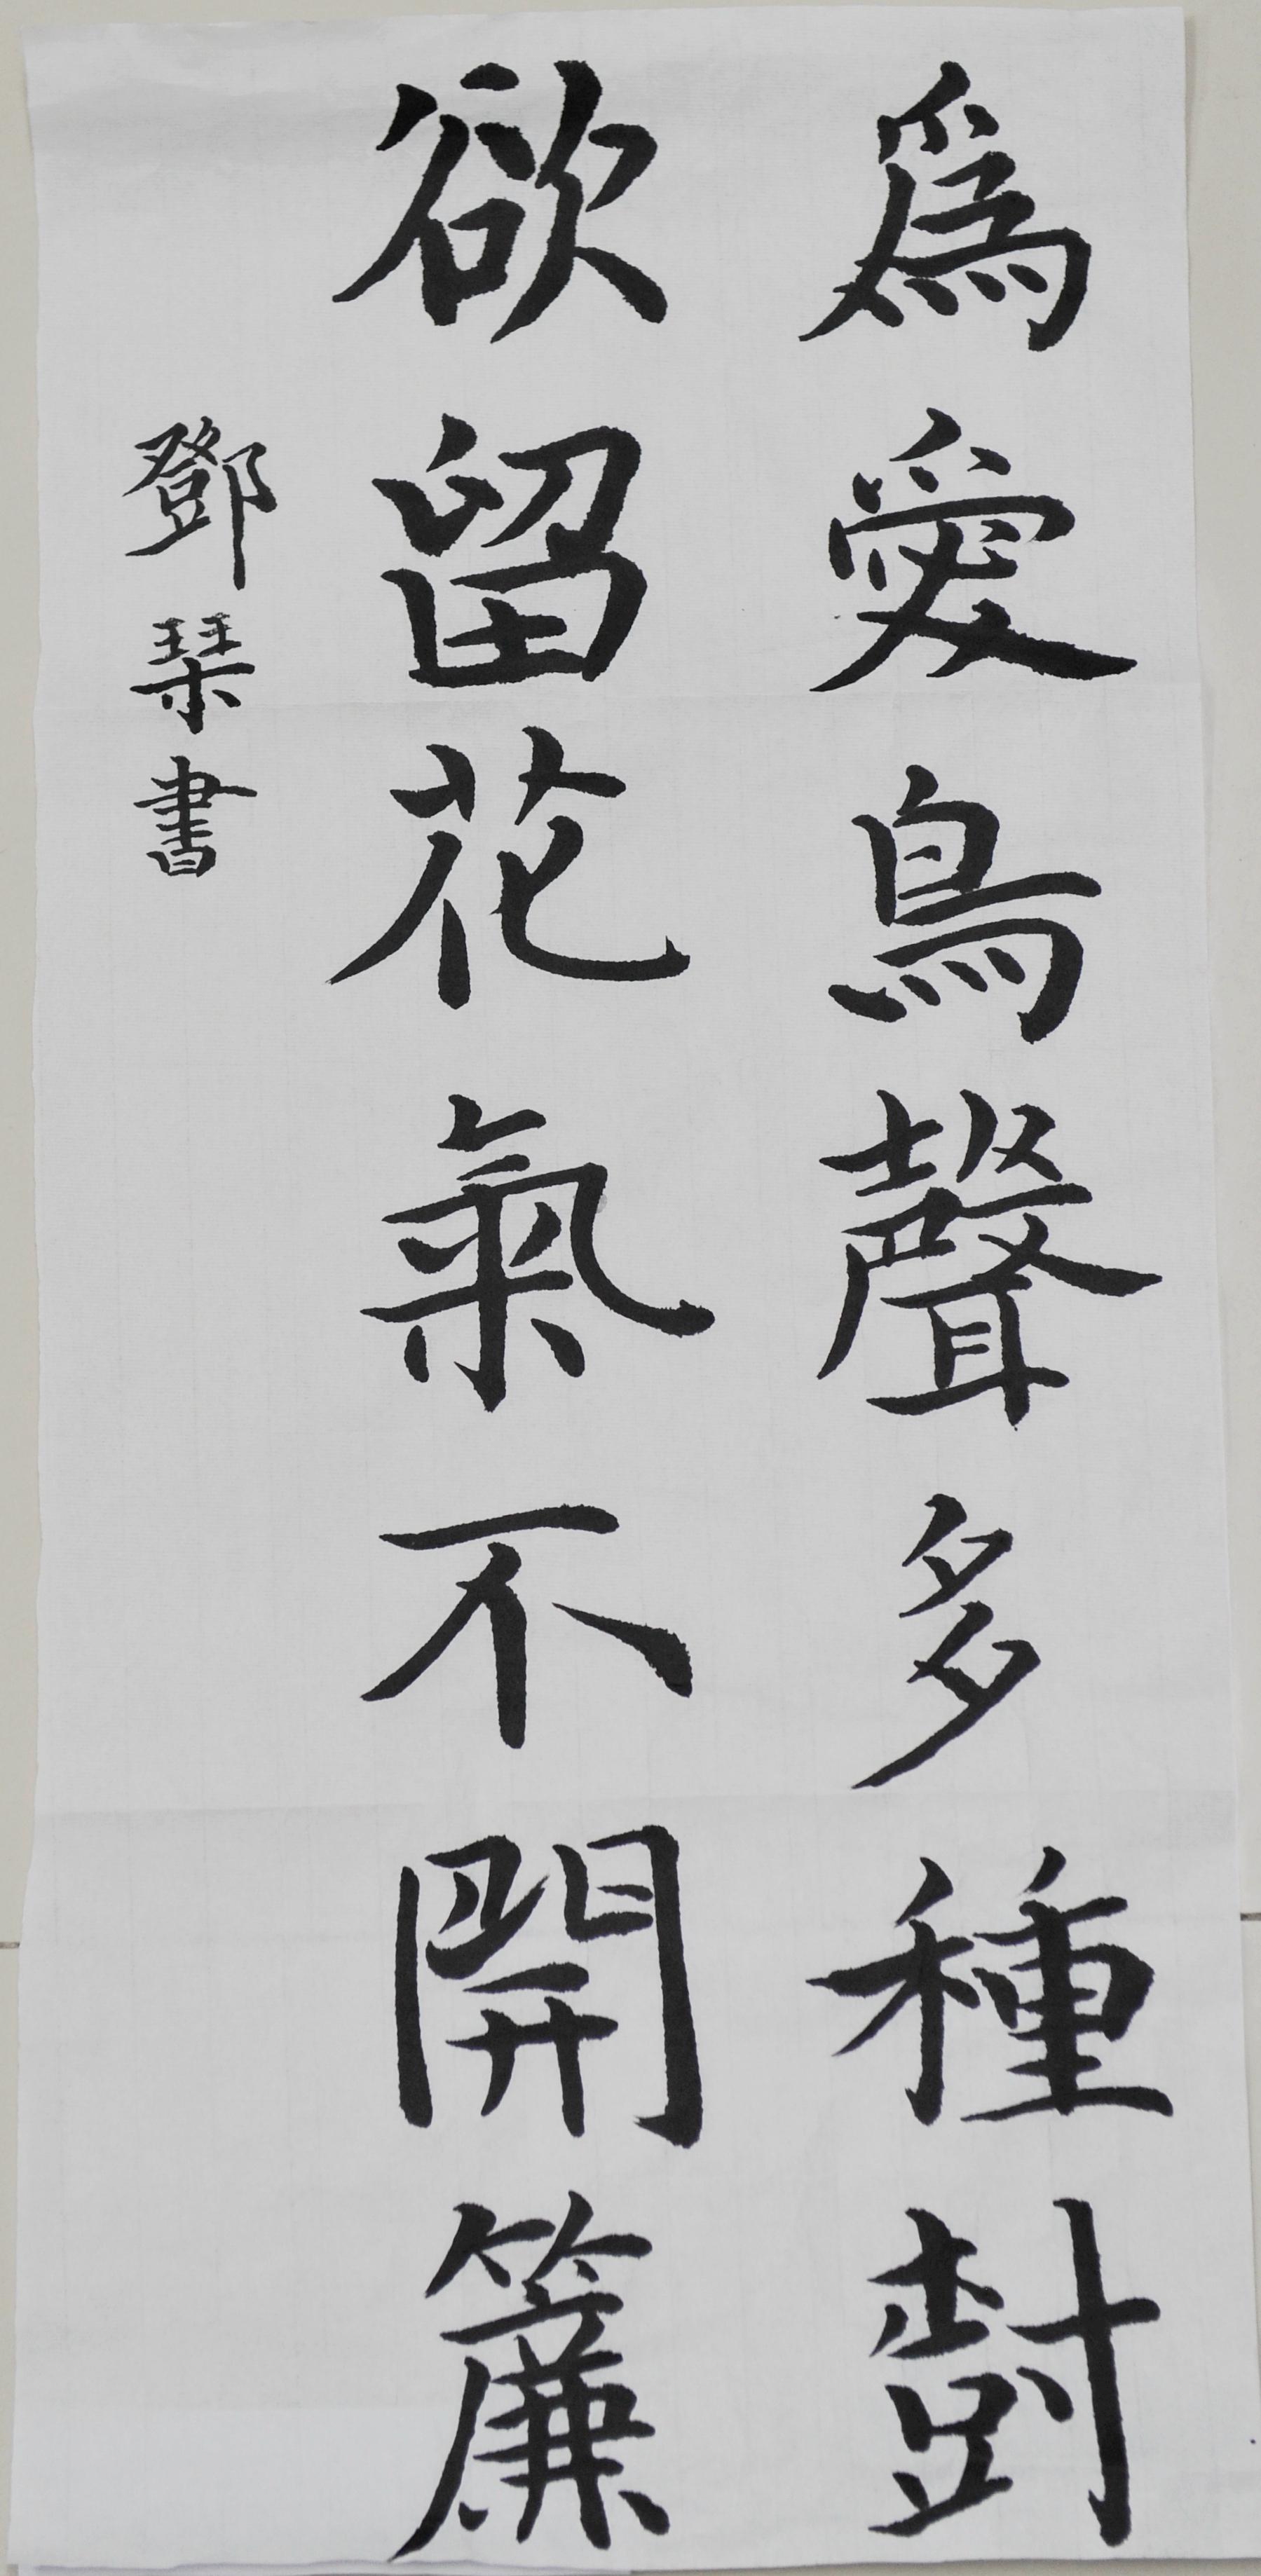 爲愛鳥聲多種尌
欲留花氣不開簾
鄧琹書